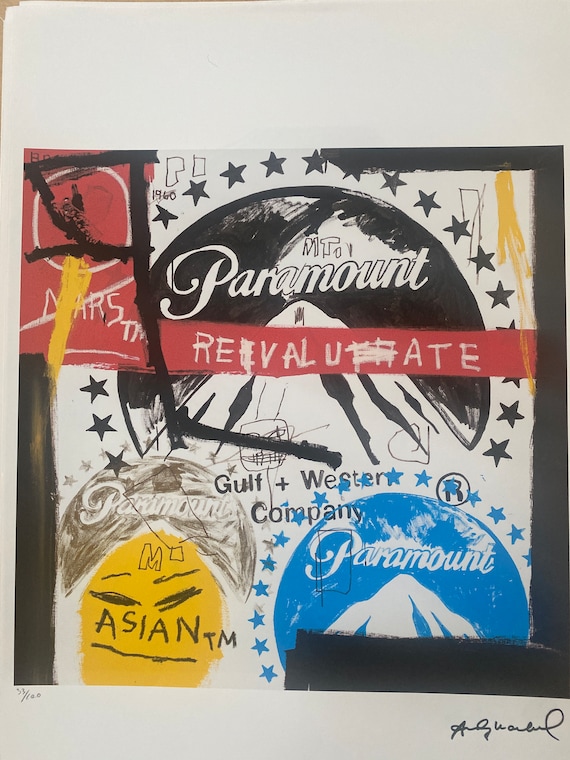 1960
MT.
Paramount
MARS TM
REVALUATE
Gulf + Western
®
Company
Paramount
Paramount
ASIAN TM
53/100
Andy Warhol